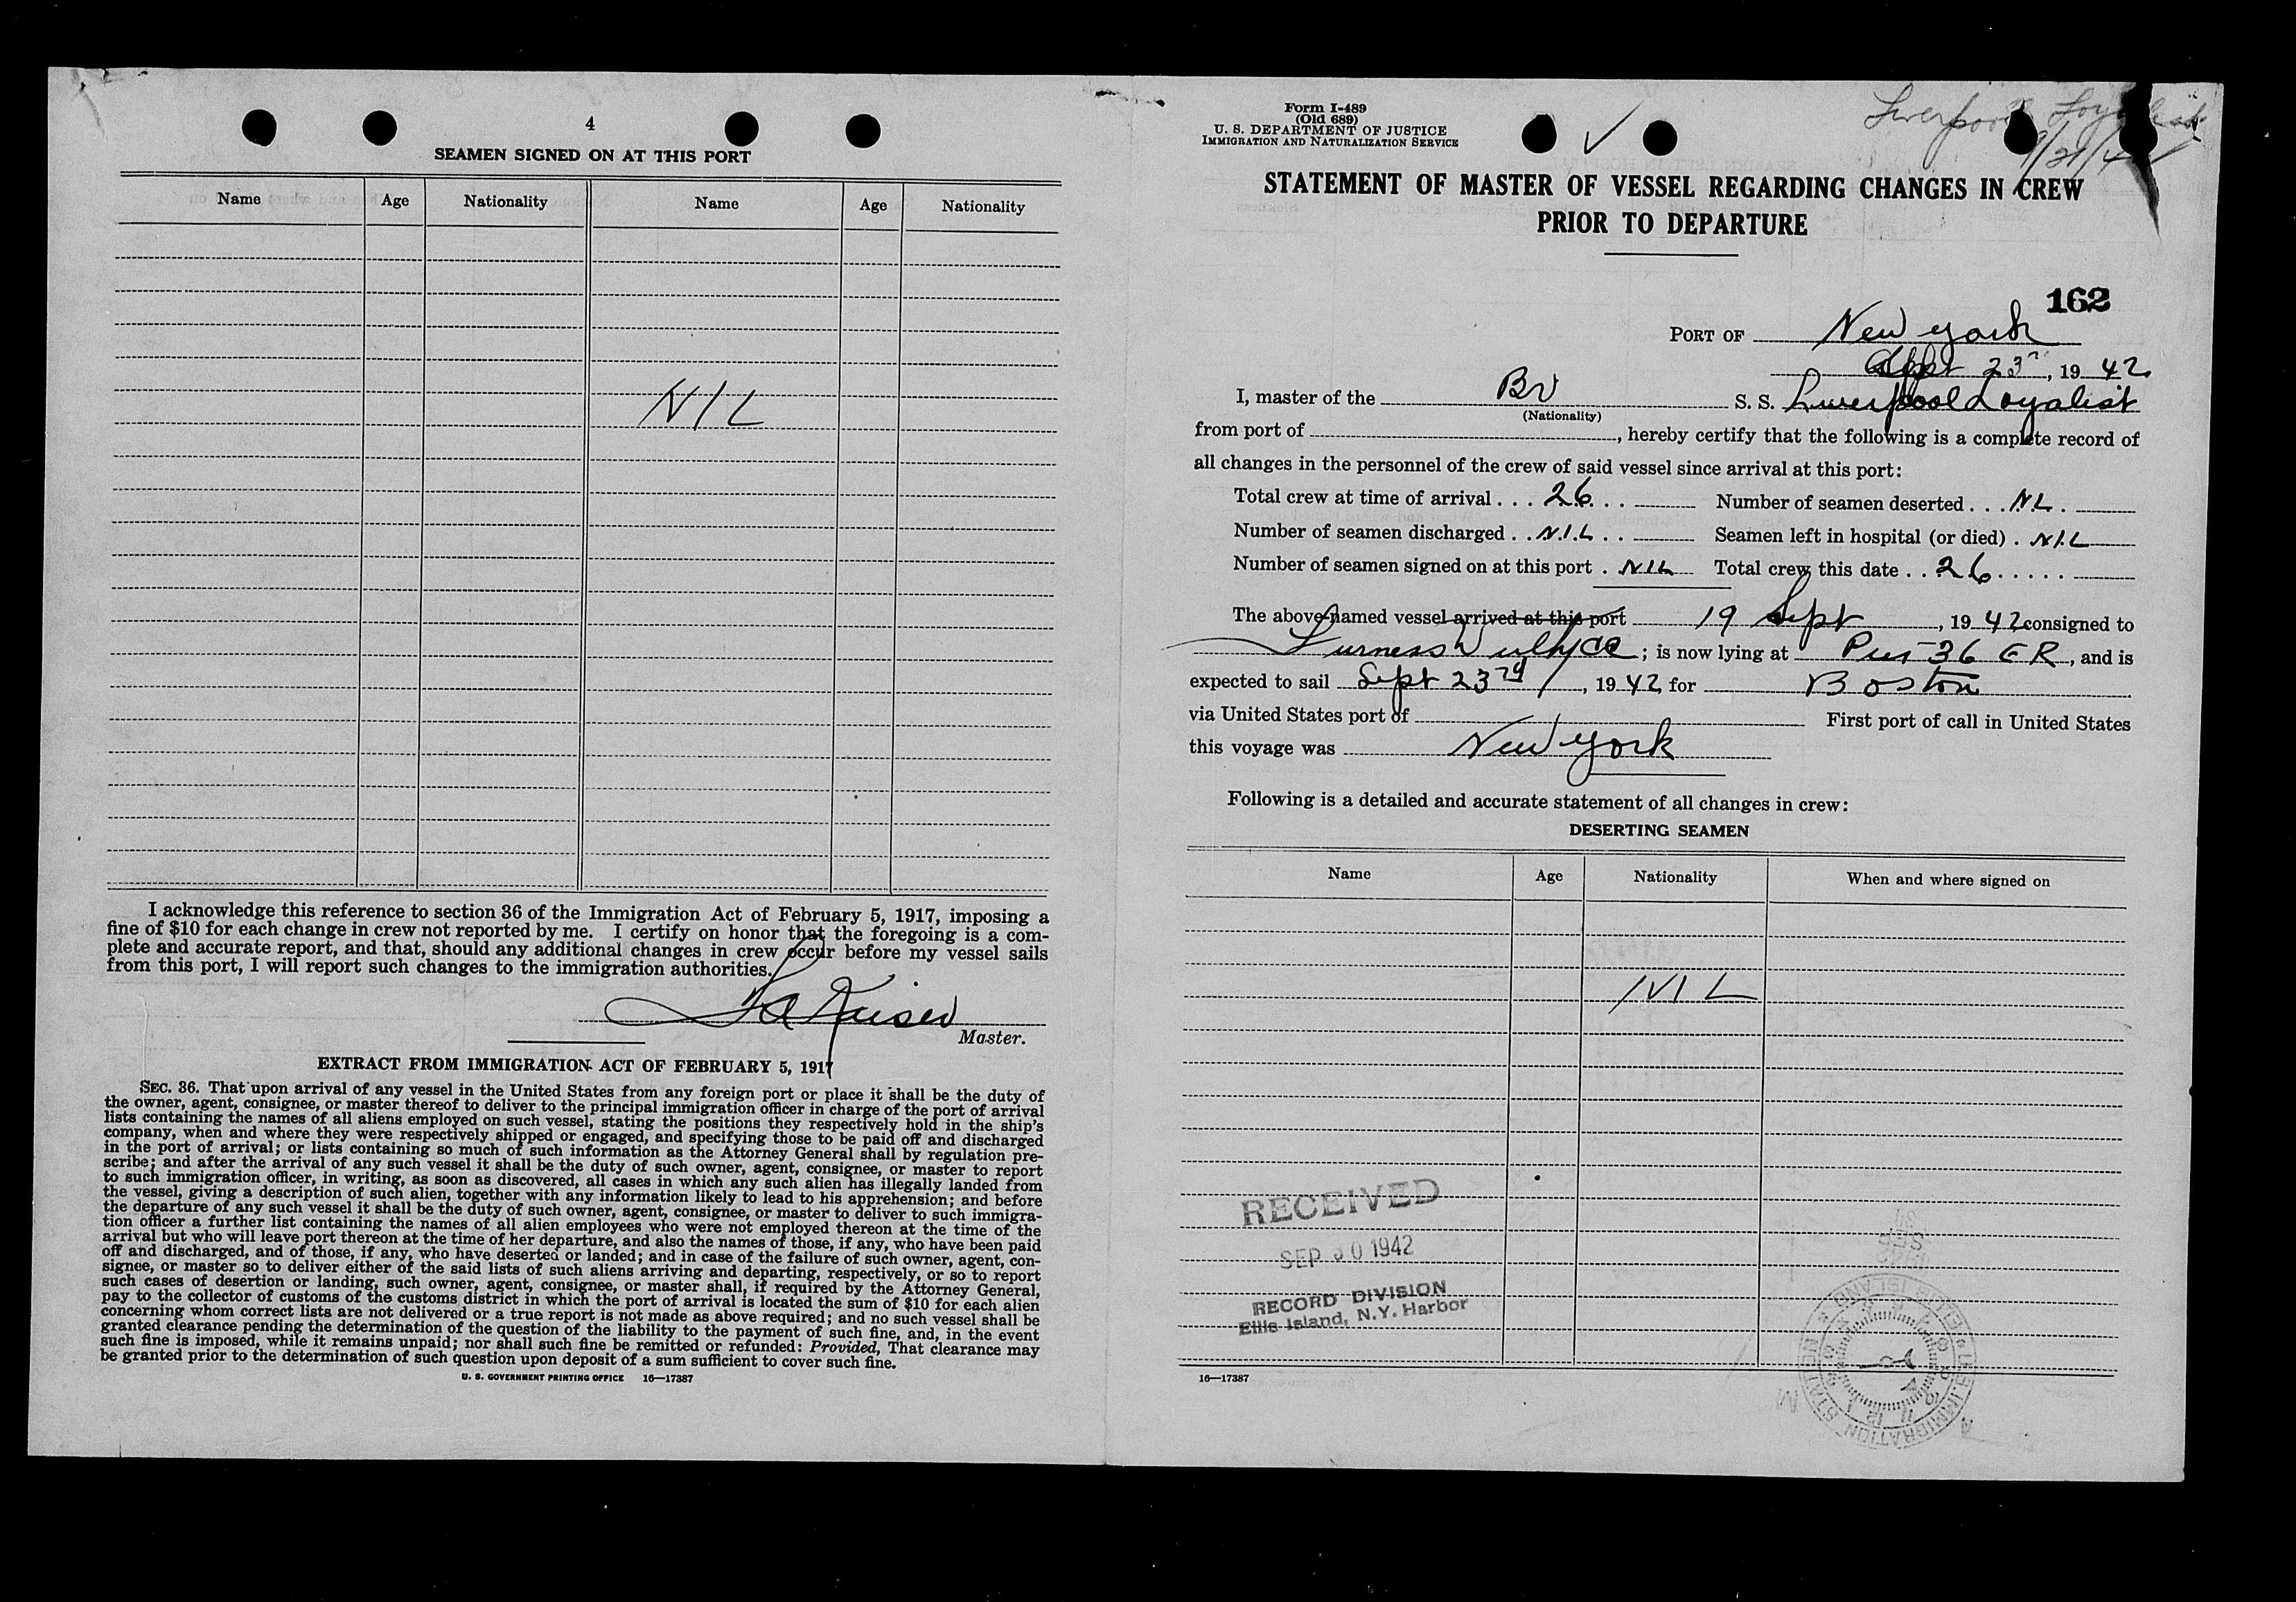 4
SEAMEN SIGNED ON AT THIS PORT
Name Age Nationality Name Age Nationality
NIL
I acknowledge this reference to section 36 of the Immigration Act of February 5, 1917, imposing a
fine of $10 for each change in crew not reported by me. I certify on honor that the foregoing is a com-
plete and accurate report, and that, should any additional changes in crew occur before my vessel sails
from this port, I will report such changes to the immigration authorities.
Master.
EXTRACT FROM IMMIGRATION ACT OF FEBRUARY 5, 1917
SEC. 36. That upon arrival of any vessel in the United States from any foreign port or place it shall be the duty of
the owner, agent, consignee, or master thereof to deliver to the principal immigration officer in charge of the port of arrival
lists containing the names of all aliens employed on such vessel, stating the positions they respectively hold in the ship's
company, when and where they were respectively shipped or engaged, and specifying those to be paid off and discharged
in the port of arrival; or lists containing so much of such information as the Attorney General shall by regulation pre-
scribe; and after the arrival of any such vessel it shall be the duty of such owner, agent, consignee, or master to report
to such immigration officer, in writing, as soon as discovered, all cases in which any such alien has illegally landed from
the vessel, giving a description of such alien, together with any information likely to lead to his apprehension; and before
the departure of any such vessel it shall be the duty of such owner, agent, consignee, or master to deliver to such immigra-
tion officer a further list containing the names of all alien employees who were not employed thereon at the time of the
arrival but who will leave port thereon at the time of her departure, and also the names of those, if any, who have been paid
off and discharged, and of those, if any, who have deserted or landed; and in case of the failure of such owner, agent, con-
signee, or master so to deliver either of the said lists of such aliens arriving and departing, respectively, or so to report
such cases of desertion or landing, such owner, agent, consignee, or master shall, if required by the Attorney General,
pay to the collector of customs of the customs district in which the port of arrival is located the sum of $10 for each alien
concerning whom correct lists are not delivered or a true report is not made as above required; and no such vessel shall be
granted clearance pending the determination of the question of the liability to the payment of such fine, and, in the event
such fine is imposed, while it remains unpaid; nor shall such fine be remitted or refunded: Provided, That clearance may
be granted prior to the determination of such question upon deposit of a sum sufficient to cover such fine.
U. S. GOVERNMENT PRINTING OFFICE 16—17387
Form I-489
(Old 689)
U. S. DEPARTMENT OF JUSTICE
IMMIGRATION AND NATURALIZATION SERVICE
Liverpool Loyalist
STATEMENT OF MASTER OF VESSEL REGARDING CHANGES IN CREW
PRIOR TO DEPARTURE
162
PORT OF New York
Sept 23rd, 19 42
I, master of the Br S. S. Liverpool Loyalist
(Nationality)
from port of , hereby certify that the following is a complete record of
all changes in the personnel of the crew of said vessel since arrival at this port:
Total crew at time of arrival . . . 26 . . Number of seamen deserted . . . NL .
Number of seamen discharged . . N.I.L . . Seamen left in hospital (or died) . NIL
Number of seamen signed on at this port . NIL Total crew this date . . 26 . . . . .
The above-named vessel arrived at this port 19 Sept , 19 42 consigned to
Furness Withy Co ; is now lying at Pier 36 ER , and is
expected to sail Sept 23rd , 19 42 for Boston
via United States port of First port of call in United States
this voyage was New York
Following is a detailed and accurate statement of all changes in crew:
DESERTING SEAMEN
Name Age Nationality When and where signed on
NIL
RECEIVED
SEP 30 1942
RECORD DIVISION
Ellis Island, N.Y. Harbor
16—17387